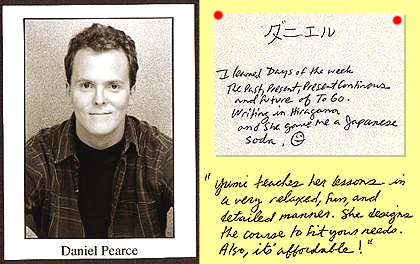 Daniel Pearce
ダニエル
I learned Days of the week
The Past, Present, Present Continous
and Future of To Go.
Writing in Hiragana
and She gave me a Japanese
soda.
"Yumi teaches her lessons in
a very relaxed, fun, and
detailed manner. She designs
the course to fit your needs.
Also, it's affordable!"